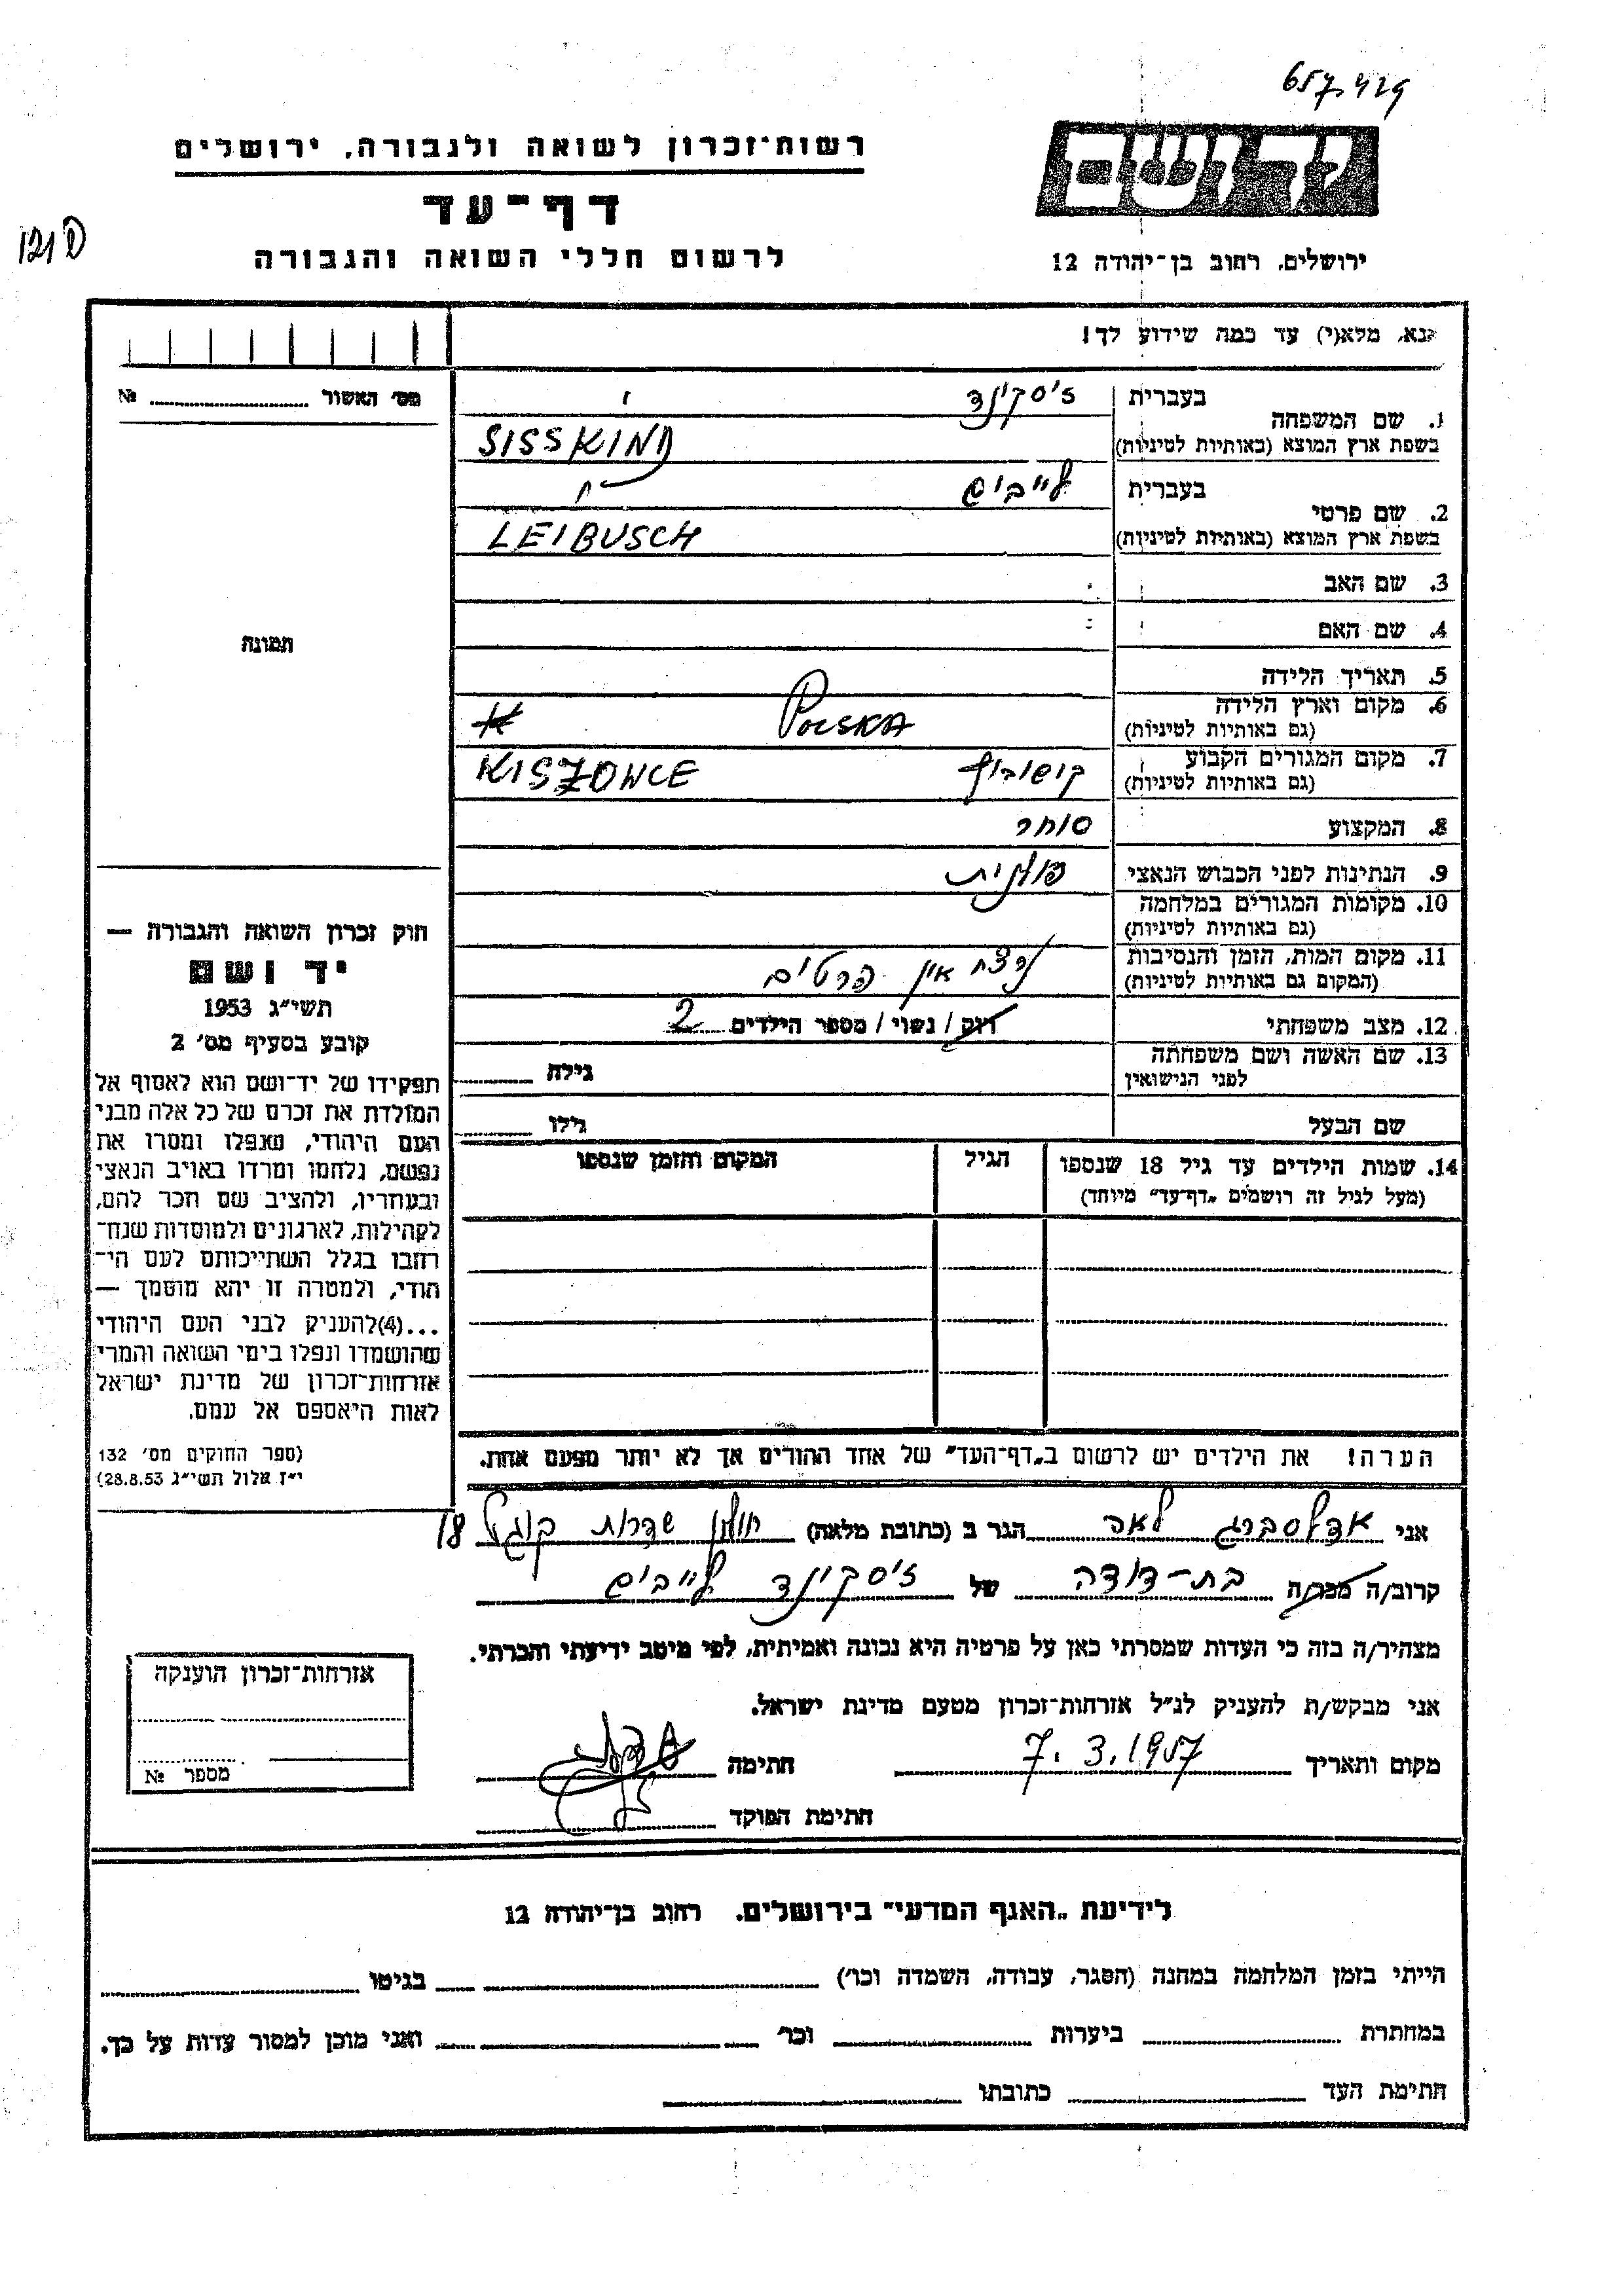 657.429
רשות־זכרון לשואה ולגבורה. ירושלים
דף־עד
לרשום חללי השואה והגבורה
ירושלים. רחוב בן־יהודה 12
נא, מלא(י) עד כמה שידוע לך!
מס׳ האשור ........ №
תמונה
1. שם המשפחה
בעברית זיסקינד
בשפת ארץ המוצא (באותיות לטיניות) SISSKIND
2. שם פרטי
בעברית לייביש
בשפת ארץ המוצא (באותיות לטיניות) LEIBUSCH
3. שם האב
4. שם האם
5. תאריך הלידה
6. מקום וארץ הלידה POLSKA
(גם באותיות לטיניות)
7. מקום המגורים הקבוע KISZONCE
(גם באותיות לטיניות)
8. המקצוע סוחר
9. הנתינות לפני הכבוש הנאצי פולנית
10. מקומות המגורים במלחמה
(גם באותיות לטיניות)
11. מקום המות, הזמן והנסיבות נרצח אין פרטים
(המקום גם באותיות לטיניות)
12. מצב משפחתי רווק / נשוי / מספר הילדים 2
13. שם האשה ושם משפחתה גילה
לפני הנישואין
שם הבעל גילו
14. שמות הילדים עד גיל 18 שנספו הגיל המקום והזמן שנספו
(מעל לגיל זה רושמים „דף־עד” מיוחד)
הערה! את הילדים יש לרשום ב„דף־העד” של אחד ההורים אך לא יותר מפעם אחת.
חוק זכרון השואה והגבורה —
יד ושם
תשי״ג 1953
קובע בסעיף מס׳ 2
תפקידו של יד־ושם הוא לאסוף אל
המולדת את זכרם של כל אלה מבני
העם היהודי, שנפלו ומסרו את
נפשם, נלחמו ומרדו באויב הנאצי
ובעוזריו, ולהציב שם וזכר להם,
לקהילות, לארגונים ולמוסדות שנח־
רחבו בגלל השתייכותם לעם הי־
הודי, ולמטרה זו יהא מוסמך —
...(4) להעניק לבני העם היהודי
שהושמדו ונפלו בימי השואה והמרי
אזרחות־זכרון של מדינת ישראל
לאות היאספם אל עמם.
(ספר החוקים מס׳ 132
י״ז אלול תשי״ג 28.8.53)
אני אדלסברג לאה הגר ב (כתובת מלאה) חולון שדרות קוגל 18
קרוב/ה מכר/ה בת-דודה של זיסקינד לייביש
מצהיר/ה בזה כי העדות שמסרתי כאן על פרטיה היא נכונה ואמיתית, לפי מיטב ידיעתי והכרתי.
אני מבקש/ת להעניק לנ״ל אזרחות־זכרון מטעם מדינת ישראל.
מקום ותאריך 7.3.1957 חתימה
חתימת הפוקד
אזרחות־זכרון הוענקה
מספר №
לידיעת „האגף המדעי” בירושלים. רחוב בן־יהודה 12
הייתי בזמן המלחמה במחנה (הסגר, עבודה, השמדה וכו׳) בגיטו
במחתרת ביערות וכו׳ ואני מוכן למסור עדות על כך.
חתימת העד כתובתו